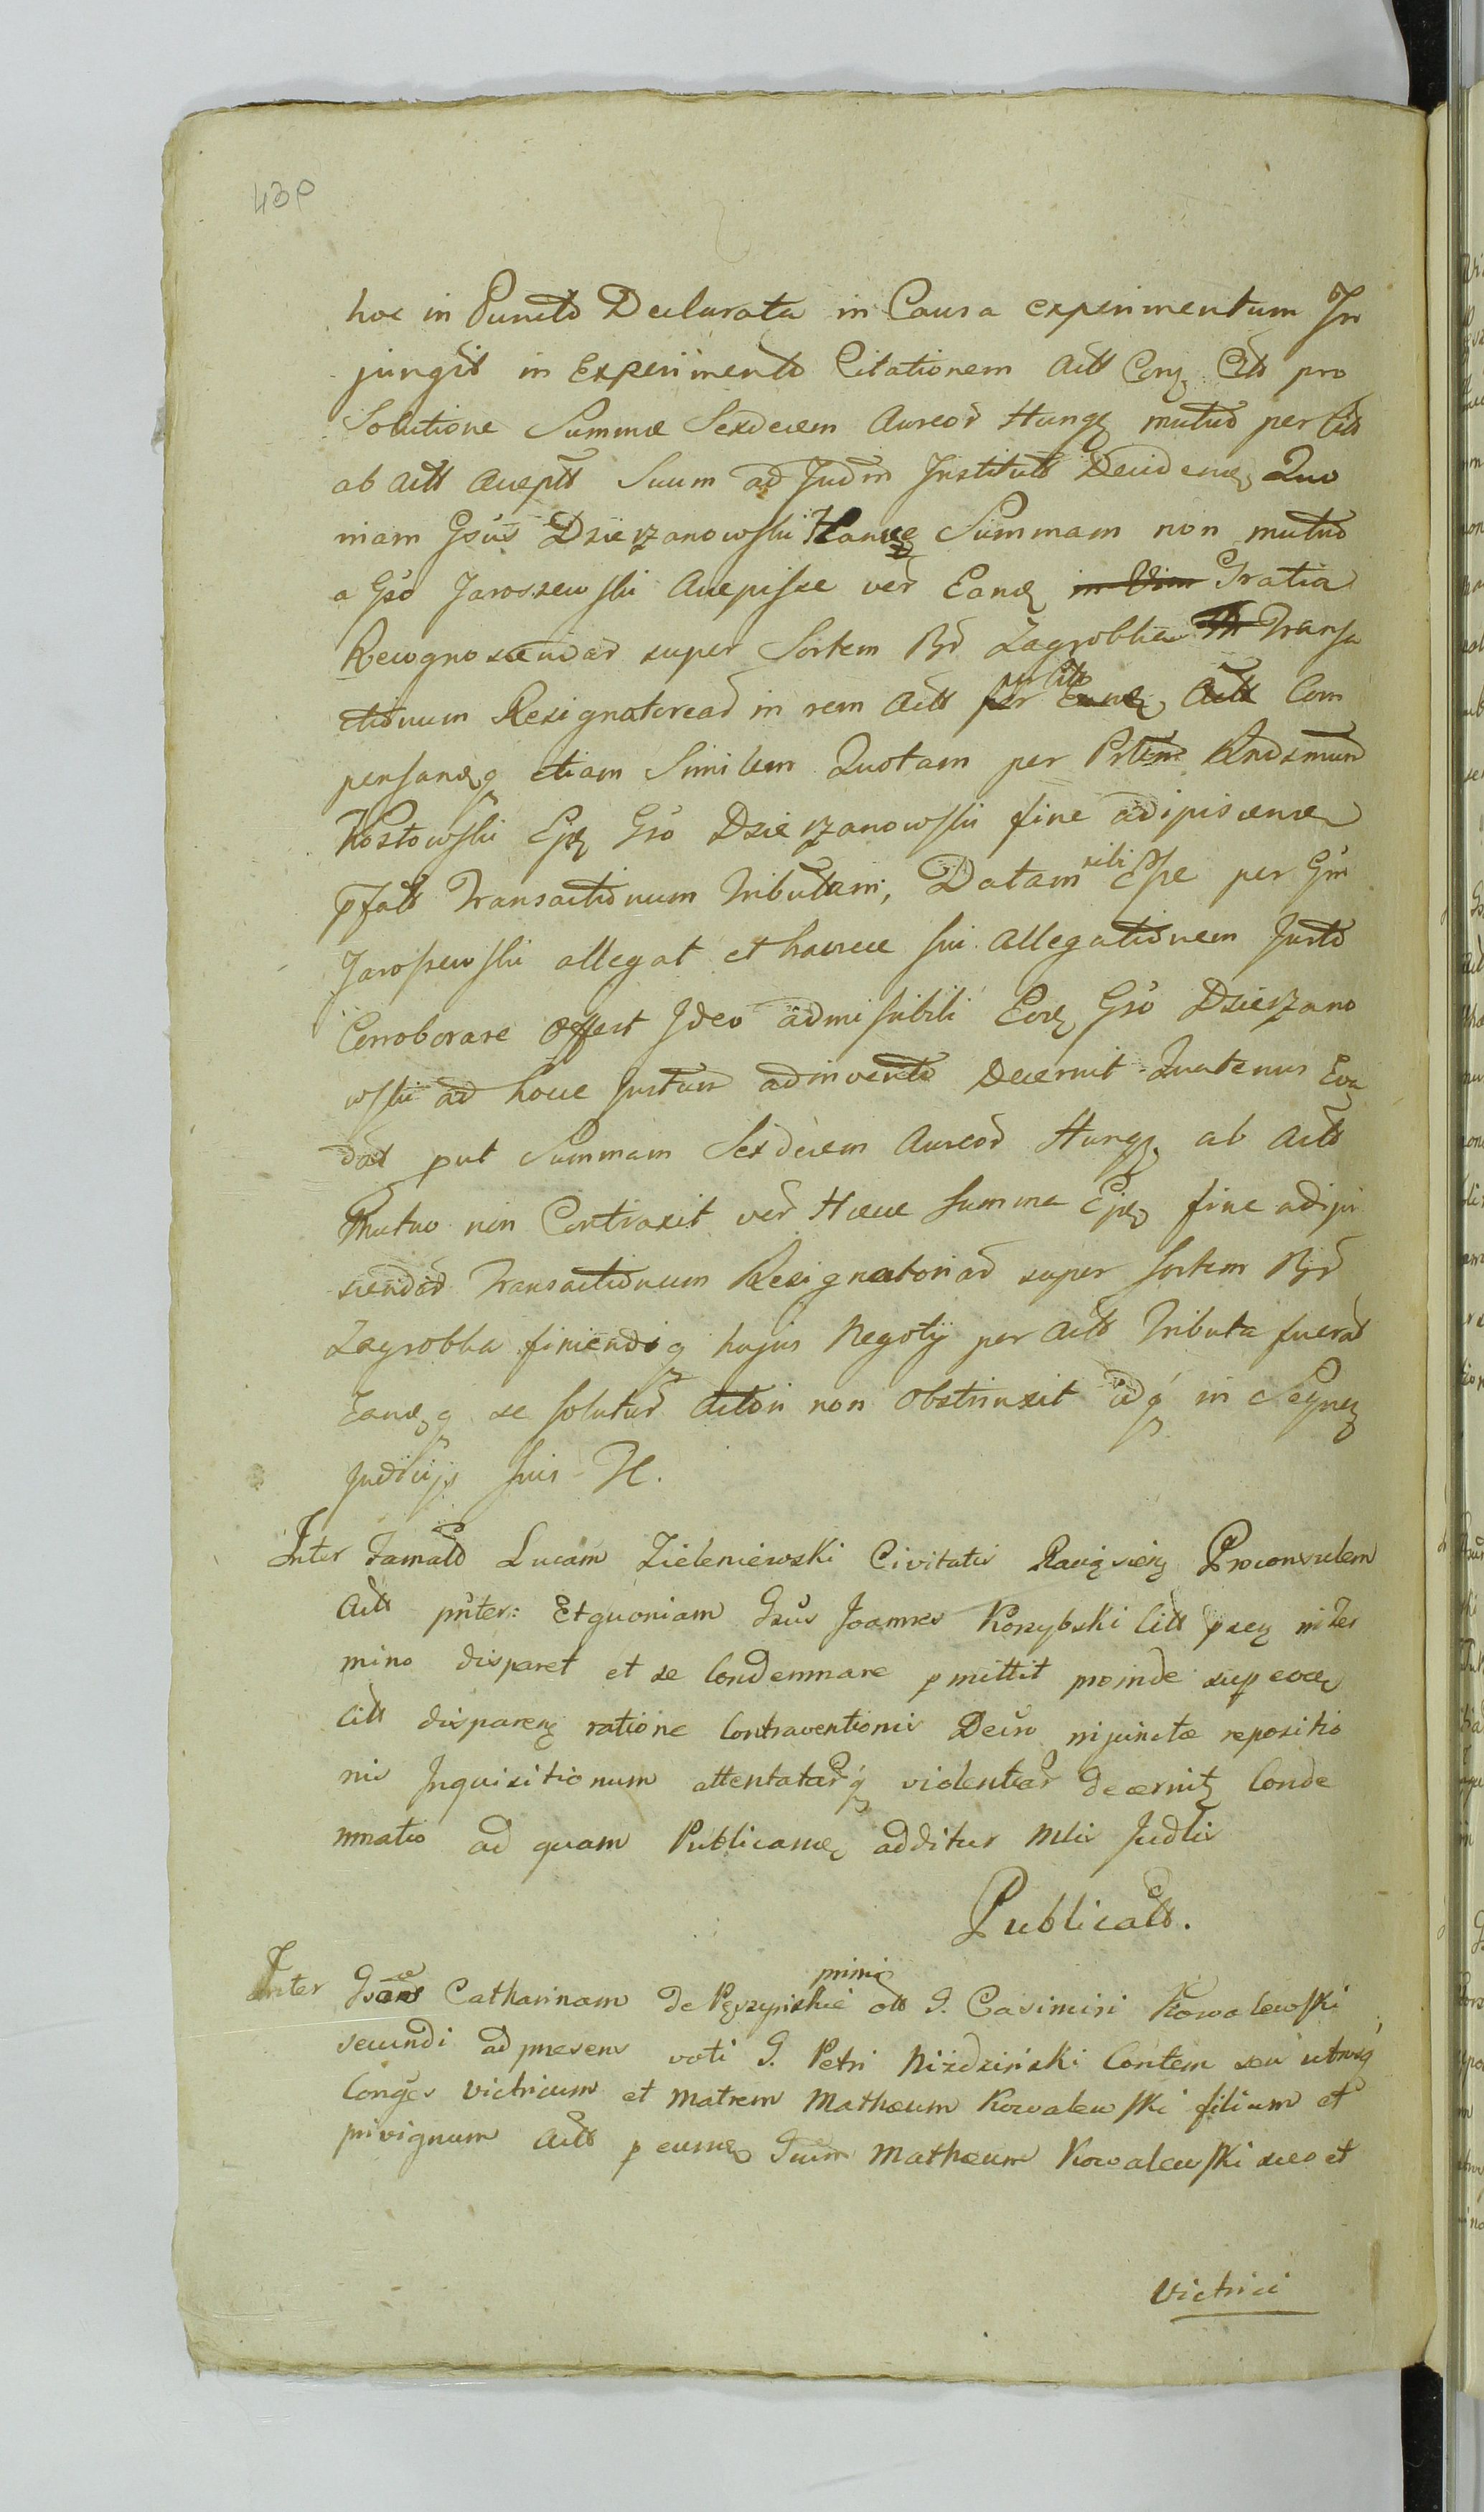 430
hoc in Puncto Declarata in Causa experimentum In
jungit in Experimento Citationem Actt Conz Citt pro
Solutione Summæ Sexdecem Aureor Hungz mutuo per Citt
ab Actt Accept Suum ad Judm Institutt Decidenz Quo
niam Gsus Dzierzanowski Hancz Summam non mutuo
a Gso Jaroszewski Accepisse ver Eandz Gratia
Recognoscendar super Sortem Bor Zagrobka Transa
ctionum Resignatoriar in rem Actt per Citt Com
persandzq etiam Similem Quotam per Kostowski Ejdz Gso Dzierzanowski fine adipiscendar
pfatt Transactionum Tributam, Datam sibi Esse per Gm
Jaroszewski allegat et hancce sui allegationem Jurto
Corroborare offert Ideo admissibili Eodz Gso Dzierzano
wski ad hocce Jurtum adinvento Decernit Quatenus Eva
dat put Summam Sexdecem Aureor Hungz ab Actt
Mutuo non Contraxit ver Hæcce Summa Ejdz fine adipi
scendar Transactionum Resignatoriar super sortem Bor
Zagrobka finiendiq hujus Negotij per Actt Tributa fuerat
Eandzq se soluturu Actori non Obstrinxit adq in Seqnz
Judicijs Juis H.
Inter Famatt Lucam Zieleniewski Civitatis Raciązienz Proconsulem
Actt pnter: Etquoniam Gsus Joannes Korzybski Citt psez in Ter
mino disparet et se Condemnare pmittit proinde sup eodz
Citt disparenz ratione Contraventionis Decro injunctæ repositio
nis Inquisitionum attentatarq violentiar decernitz Conde
mnatio ad quam Publicandz additur Mlis Judlis
Publicatt.
Inter Gsam Catharinam de primi ott G. Casimiri Kowalewski
secundi ad præsens voti G. Petri Niździński Contem seu utrosq
Conges victricum et Matrem Mathæum Kowalewski filium et
privignum Actt p eumdz Gsum Mathæum Kowalewski suo et
victrici